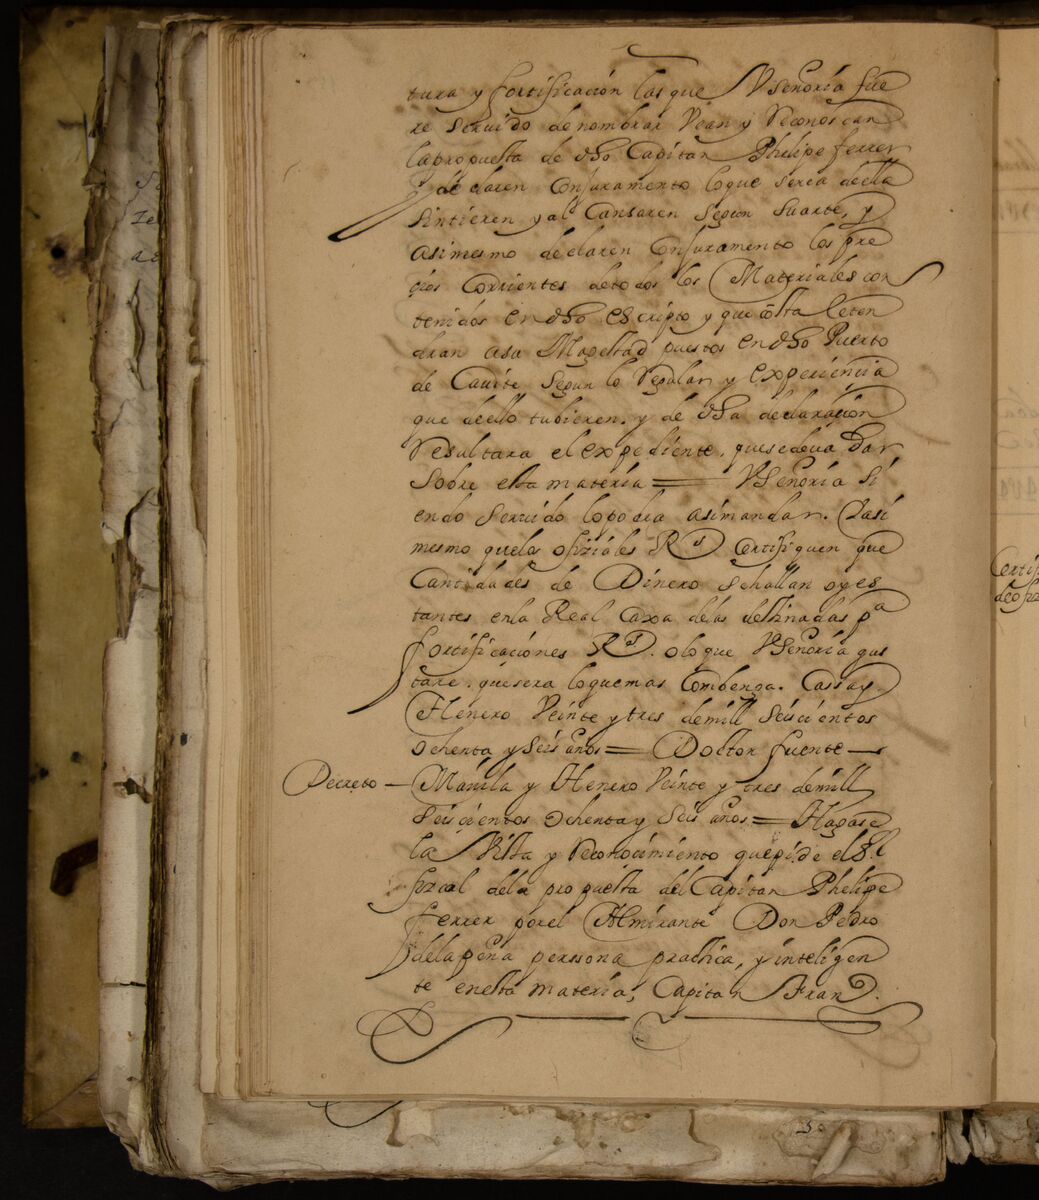 tura y fortificación las que VSeñoría fue
re servido de nombrar Vean y Reconoscan
la propuesta de dho Capitan Phelipe ferrer
y declaren Con juramento lo que serca della
sintieren y al Cansaren segun su arte, y
asimesmo declaren Con juramento los pre
çios Corrientes de todos los Materiales con
tenidos en dho escripto y que costa leten
dran asu Magestad puestos en dho Puerto
de Cavite segun lo Regular y experiencia
que dello tubieren. y de dha declaraçion
Resultara el expediente. que se deva dar
sobre esta materia = VSeñoría Si
endo servido lo podra asi mandar. Y asi
mesmo que los ofiziales Rs Certifiquen que
Cantidades de Dinero se hallan oy es
tantes en la Real Caxa de las destinadas pa
fortificaciones Rs. o lo que VSeñoria gus
tare. que sera lo que mas Combenga. Cassa y
Henero Veinte y tres de mill Seiscientos
ochenta y seis años = Doctor fuente —
Decreto — Manila y Henero Veinte y tres de mill
Seiscientos ochenta y Seis años = Hagase
la Vista y Reconocimiento que pide el Sr
fizcal de la propuesta del Capitan Phelipe
ferrer por el Almirante Don Pedro
de la peña perssona practica, y inteligen
te en esta materia, Capitan Franco.
Certifi